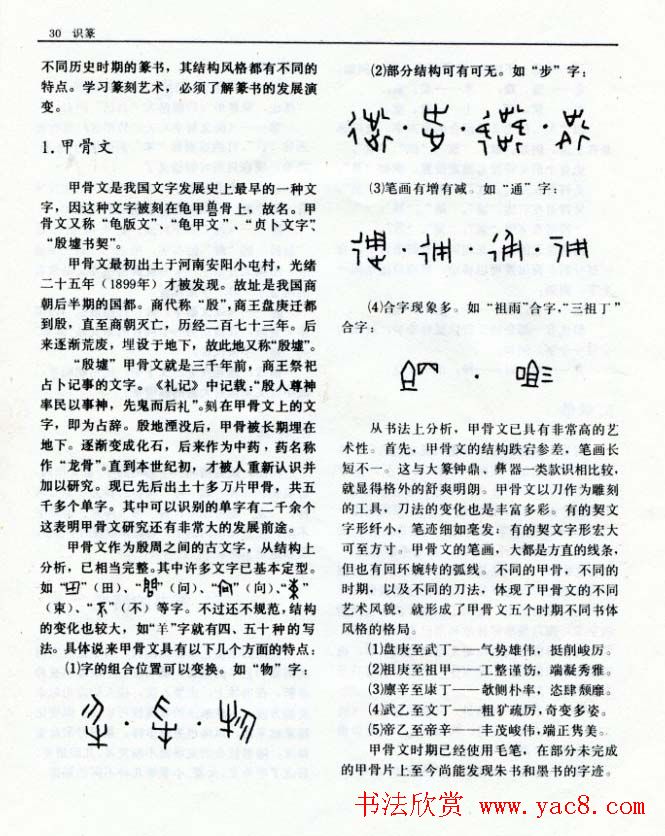 30 识篆
不同历史时期的篆书，其结构风格都有不同的
特点。学习篆刻艺术，必须了解篆书的发展演
变。
1.甲骨文
甲骨文是我国文字发展史上最早的一种文
字，因这种文字被刻在龟甲兽骨上，故名。甲
骨文又称“龟版文”、“龟甲文”、“贞卜文字”、
“殷墟书契”。
甲骨文最初出土于河南安阳小屯村，光绪
二十五年（1899年）才被发现。故址是我国商
朝后半期的国都。商代称“殷”，商王盘庚迁都
到殷，直至商朝灭亡，历经二百七十三年。后
来逐渐荒废，埋设于地下，故此地又称“殷墟”。
“殷墟”甲骨文就是三千年前，商王祭祀
占卜记事的文字。《礼记》中记载：“殷人尊神
率民以事神，先鬼而后礼”。刻在甲骨文上的文
字，即为占辞。殷地湮没后，甲骨被长期埋在
地下。逐渐变成化石，后来作为中药，药名称
作“龙骨”。直到本世纪初，才被人重新认识并
加以研究。现已先后出土十多万片甲骨，共五
千多个单字。其中可以识别的单字有二千余个
这表明甲骨文研究还有非常大的发展前途。
甲骨文作为殷周之间的古文字，从结构上
分析，已相当完整。其中许多文字已基本定型。
如“”（田）、“”（问）、“”（向）、“”
（東）、“”（不）等字。不过还不规范，结构
的变化也较大，如“羊”字就有四、五十种的写
法。具体说来甲骨文具有以下几个方面的特点：
(1)字的组合位置可以变换。如“物”字：
(2)部分结构可有可无。如“步”字：
(3)笔画有增有减。如“通”字：
(4)合字现象多。如“祖雨”合字，“三祖丁”
合字：
从书法上分析，甲骨文已具有非常高的艺
术性。首先，甲骨文的结构跌宕参差，笔画长
短不一。这与大篆钟鼎、彝器一类款识相比较，
就显得格外的舒爽明朗。甲骨文以刀作为雕刻
的工具，刀法的变化也是丰富多彩。有的契文
字形纤小，笔迹细如毫发；有的契文字形宏大
可至方寸。甲骨文的笔画，大都是方直的线条，
但也有回环婉转的弧线。不同的甲骨，不同的
时期，以及不同的刀法，体现了甲骨文的不同
艺术风貌，就形成了甲骨文五个时期不同书体
风格的格局。
(1)盘庚至武丁——气势雄伟，挺削峻厉。
(2)祖庚至祖甲——工整谨饬，端凝秀雅。
(3)廪辛至康丁——欹侧朴率，恣肆颓靡。
(4)武乙至文丁——粗犷疏厉，奇变多姿。
(5)帝乙至帝辛——丰茂峻伟，端正隽美。
甲骨文时期已经使用毛笔，在部分未完成
的甲骨片上至今尚能发现朱书和墨书的字迹。
书法欣赏 www.yac8.com